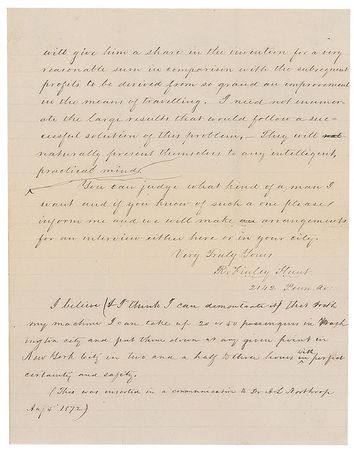 will give him a share in the invention for a very
reasonable sum in comparison with the subsequent
profits to be derived from so grand an improvement
in the means of travelling. I need not enumer-
ate the large results that would follow a suc-
cessful solution of this problem,— They will
naturally present themselves to any intelligent,
practical mind.
You can judge what kind of a man I
want and if you know of such a one please
inform me and we will make arrangements
for an interview either here or in your city.
Very Truly Yours
R. Finley Hunt
2142 Penn Av.
I believe (& I think I can demonstrate it) that with
my machine I can take up 20 or 50 passengers in Wash
ington city and put them down at any given point in
New York City in two and a half to three hours with
certainty and safety.
(This was inserted in a communication to Dr A L Northrop
Aug 5 1872)